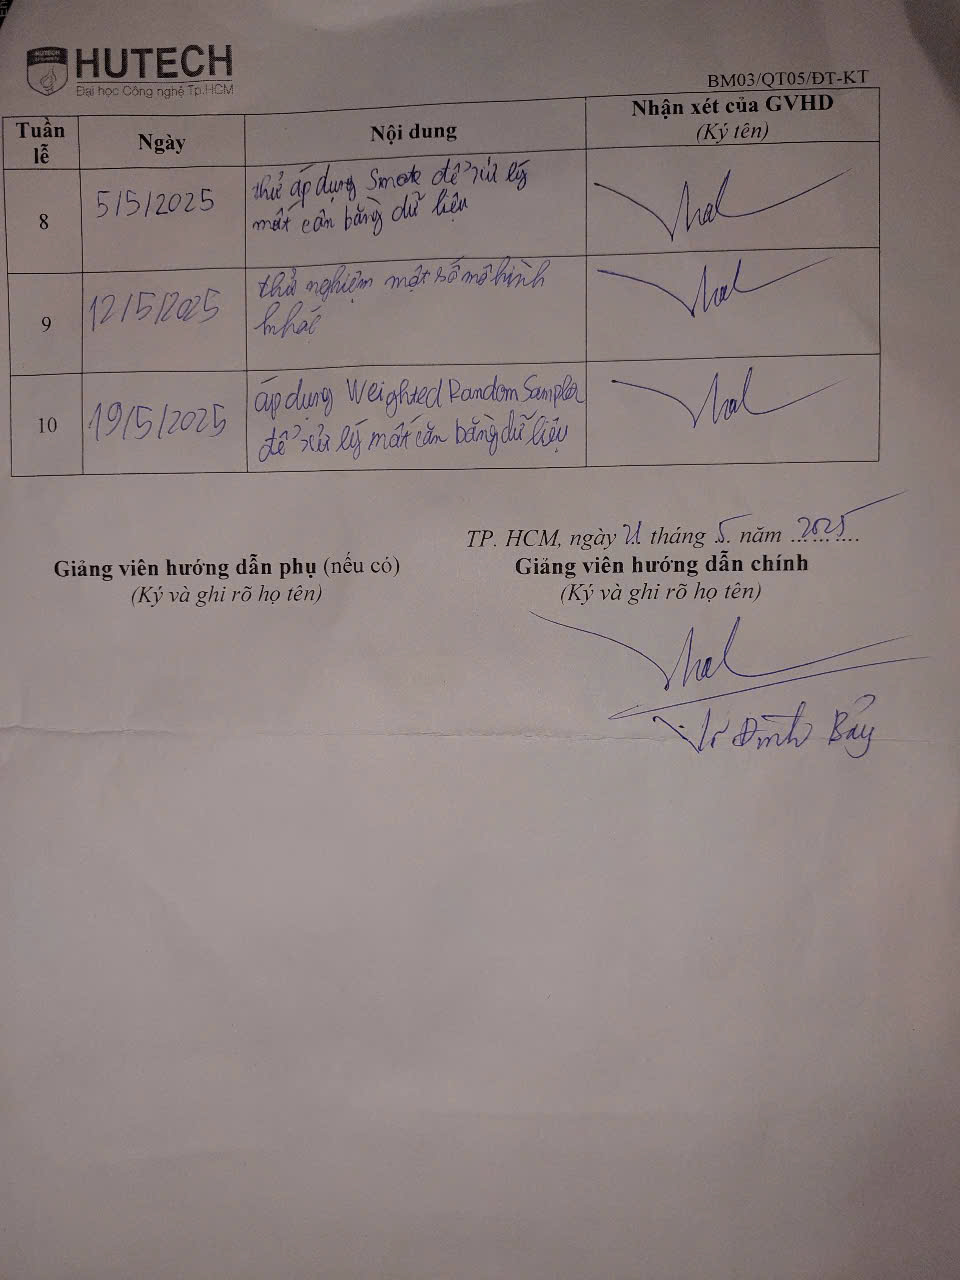 HUTECH
Đại học Công nghệ Tp.HCM
BM03/QT05/ĐT-KT
Tuần lễ
Ngày
Nội dung
Nhận xét của GVHD
(Ký tên)
8
5/5/2025
thử áp dụng Smote để xử lý
mất cân bằng dữ liệu
9
12/5/2025
thử nghiệm một số mô hình
khác
10
19/5/2025
áp dụng Weighted Random Sampler
để xử lý mất cân bằng dữ liệu
TP. HCM, ngày 21 tháng 5 năm 2025
Giảng viên hướng dẫn phụ (nếu có)
(Ký và ghi rõ họ tên)
Giảng viên hướng dẫn chính
(Ký và ghi rõ họ tên)
Đình Bảy